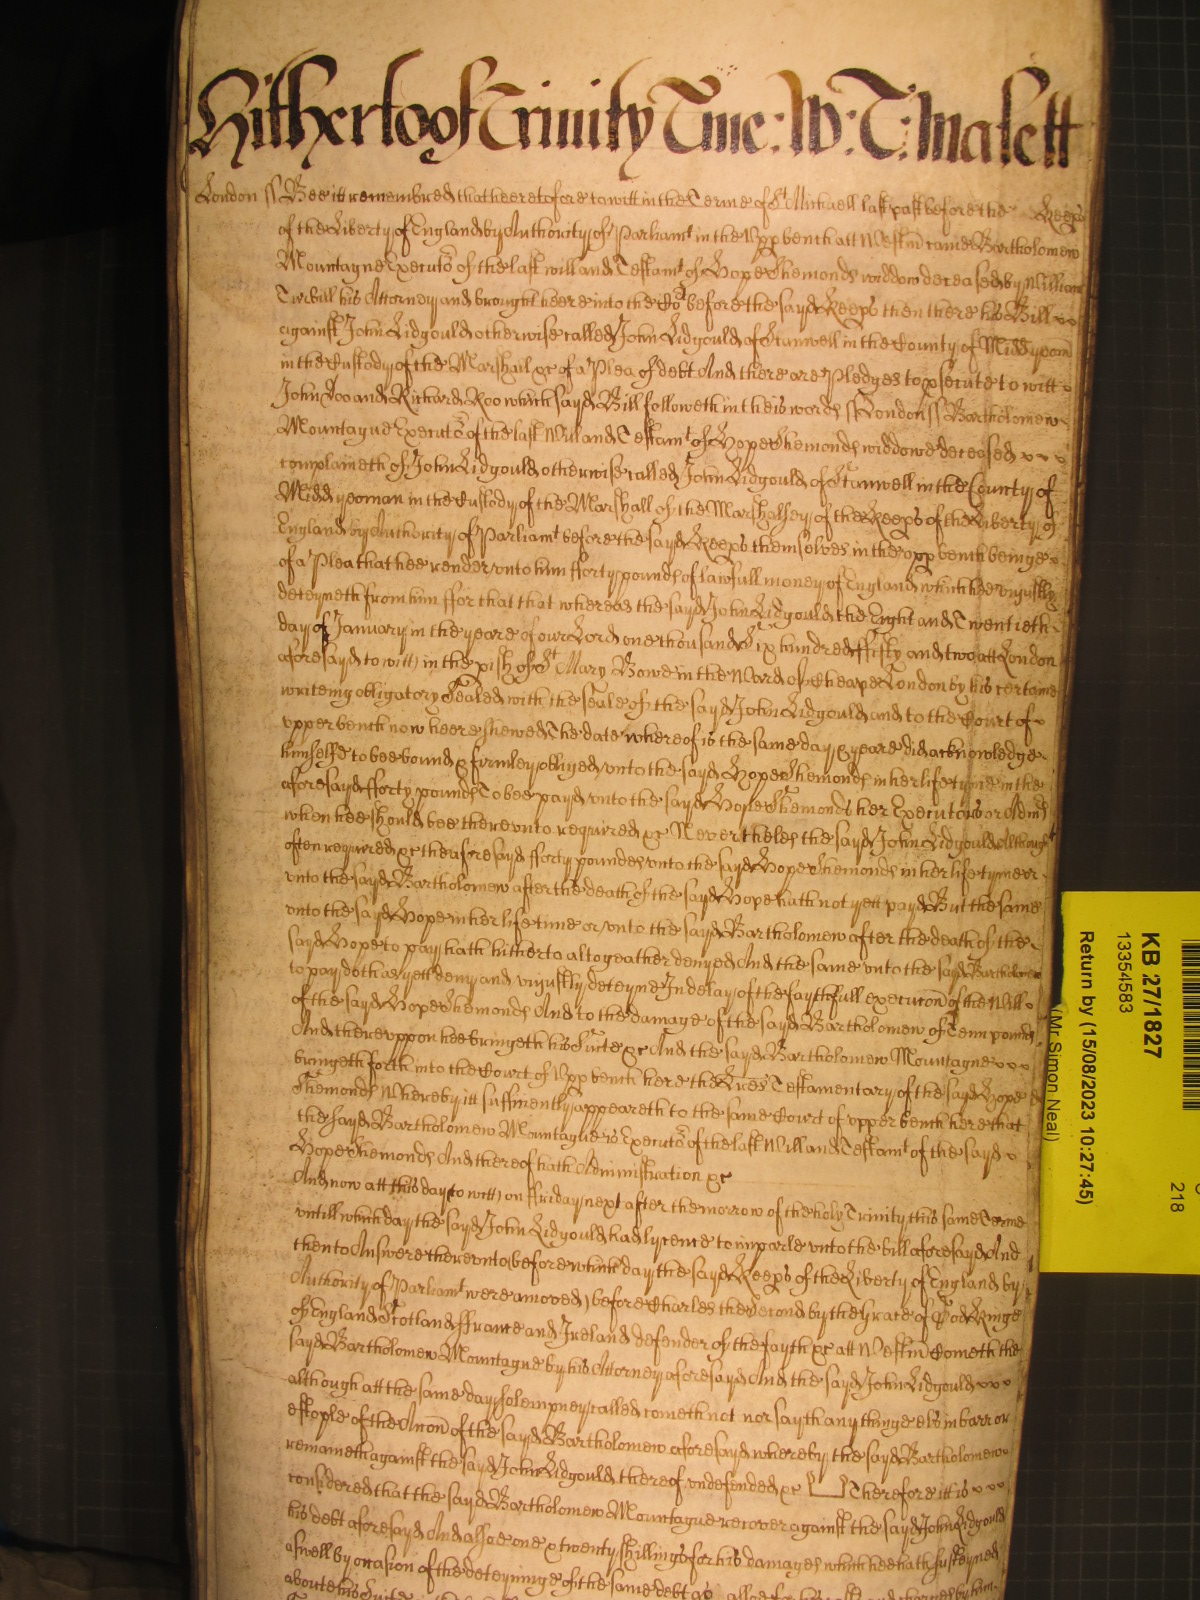 Hitherto of Trinity Tme: W: T: Malett
London ss Bee itt remembred that heeretofore to witt in the Terme of St Michaell last past before the Keeps
of the Liberty of England by Authority of Parliamt in the Upp bench att Westm came Bartholomew
Mountague Executor of the last will and Testamt of Hope Shemonds widdow deceased by William
his Attorney and brought heere into the Cot before the sayd Keeps then there his Bill
against John Lidgould otherwise called John Lidgould of Stanwell in the County of Midd yeom
in the Custody of the Marshall &c of a Plea of debt And there are Pledges to psecute to witt
John Doo and Richard Roo which sayd Bill followeth in theis words ss London ss Bartholomew
Mountague Executor of the last Will and Testamt of Hope Shemonds widdowe deceased
complaineth of John Lidgould otherwise called John Lidgould of Stanwell in the County of
Midd yeoman in the Custody of the Marshall of the Marshalsey of the Keeps of the Liberty of
England by Authority of Parliamt before the sayd Keeps themsolves in the upp bench beinge
of a Plea that hee render unto him fforty pounds of lawfull money of England which hee uniustly
deteyneth from him ffor that that whereas the sayd John Lidgould the Eight and Twentieth
day of January in the yeare of our Lord one thousand Six hundred ffifty and two att London
aforesayd to witt in the pish of St Mary Bowe in the Ward of Cheape London by his certaine
writeing obligatory Sealed with the seale of the sayd John Lidgould and to the Court of
upper bench now heere shewed The date whereof is the same day & yeare did acknowledge
himselfe to bee bound & firmley obliged unto the sayd Hope Shemonds in her life tyme in the
aforesayd fforty pounds To bee payd unto the sayd Hope Shemonds her Executors or Admrs
when hee should bee thereunto required &c Nevertheles the sayd John Lidgould Although
often required &c the aforesayd fforty poundes unto the sayd Hope Shemonds in her life tyme or
unto the sayd Bartholomew after the death of the sayd Hope hath not yett payd But the same
unto the sayd Hope in her life time or unto the sayd Bartholomew after the death of the
sayd Hope to pay hath hitherto altogeather denyed And the same unto the sayd Bartholomew
to pay doth as yett deny and uniustly deteyne In delay of the faythfull execucon of the Will
of the sayd Hope Shemonds And to the damage of the sayd Bartholomew of Tenn pounds
And thereuppon hee bringeth his Suite &c And the sayd Bartholomew Mountague
bringeth forth into the Court of Upp bench here the Lres Testamentary of the sayd Hope
Shemonds Whereby itt suffitiently appeareth to the same Court of upper bench here that
the sayd Bartholomew Mountague is Executor of the last Will and Testamt of the sayd
Hope Shemonds And thereof hath Administration &c
And now att this day to witt on ffriday next after the morrow of the holy Trinity this same Terme
untill which day the sayd John Lidgould had lycence to imparle unto the bill aforesayd And
then to Answere thereunto before which day the sayd Keeps of the Liberty of England by
Authority of Parliamt were amoved before Charles the Second by the Grace of God Kinge
of England Scotland ffrance and Ireland defender of the fayth &c att Westm Cometh the
sayd Bartholomew Mountague by his Attorney aforesayd And the sayd John Lidgould
although att the same day solempney called cometh not nor sayth any thinge els in barr or
estople of the Accon of the sayd Bartholomew aforesayd whereby the sayd Bartholomew
remaineth against the sayd John Lidgould thereof undefended &c Therefore itt is
considered that the sayd Bartholomew Mountague recover against the sayd John Lidgould
his debt aforesayd And alsoe one & twenty shillings for his damages which hee hath susteyned
aswell by occasion of the deteyninge of the same debt as
about his Suite in
KB 27/1827
13354583
Return by (15/08/2023 10:27:45)
(Mr Simon Neal)
218